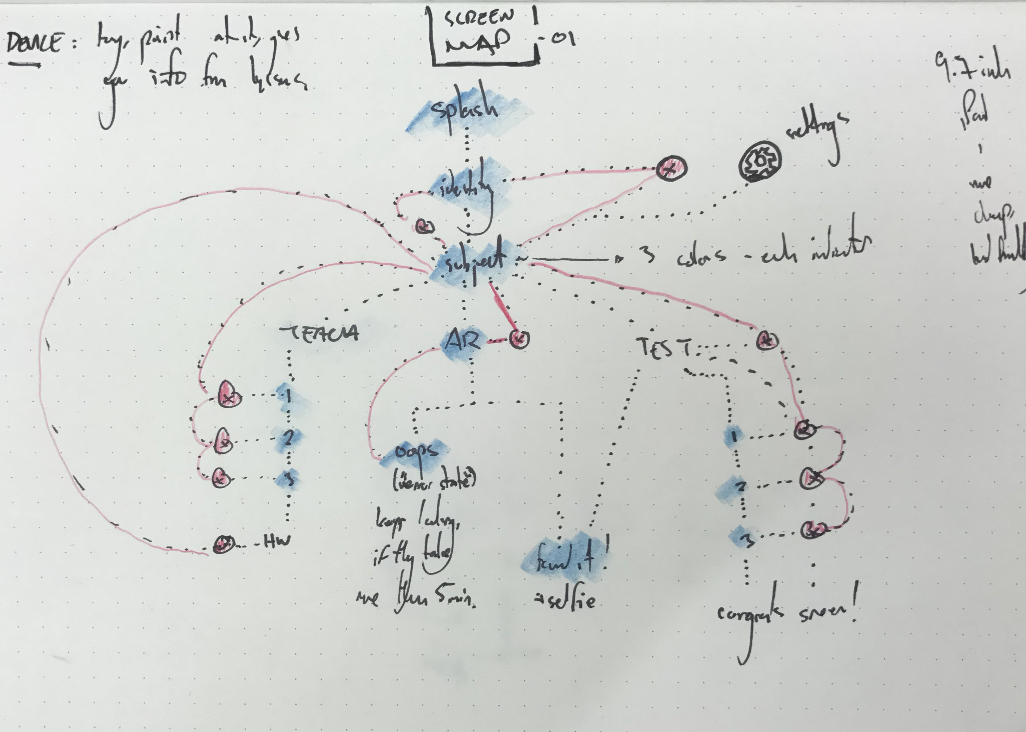 SCREEN
MAP -01
DEVICE: toy, point at it, gives
info from
9.7 inch
iPad
splash
identity
settings
subject
3 colors - each indicator
TEACH
AR
TEST
1
2
3
HW
oops
("error state")
keeps looking,
if they take
more than 5 min.
found it!
selfie
1
2
3
congrats screen!